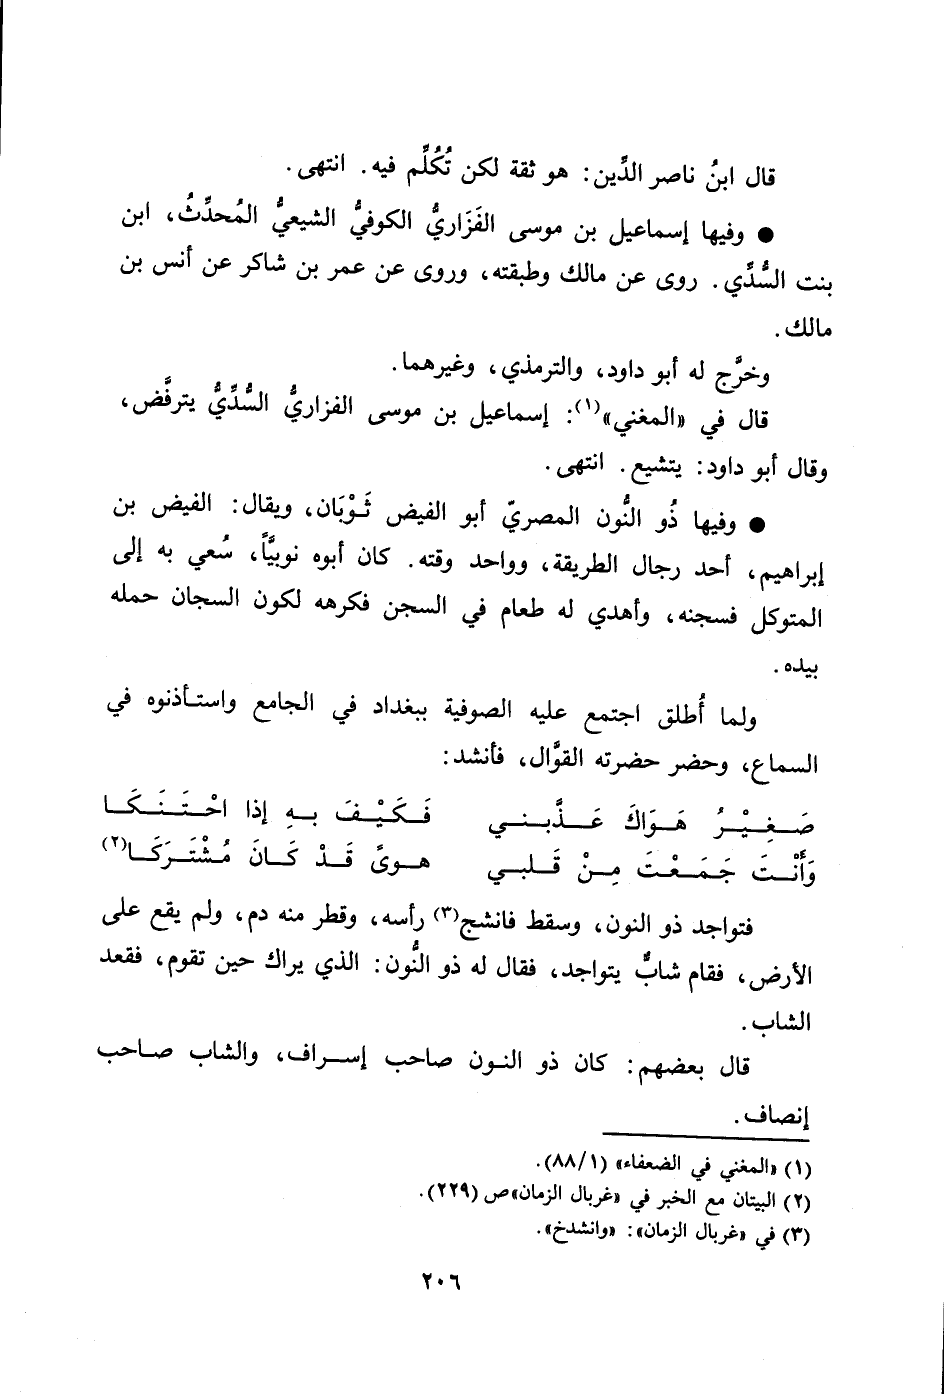 قال ابنُ ناصر الدِّين: هو ثقة لكن تُكُلِّم فيه. انتهى.
● وفيها إسماعيل بن موسى الفَزَاريُّ الكوفيُّ الشيعيُّ المُحدِّثُ، ابن
بنت السُّدِّي. روى عن مالك وطبقته، وروى عن عمر بن شاكر عن أنس بن
مالك.
وخرَّج له أبو داود، والترمذي، وغيرهما.
قال في «المغني»(١): إسماعيل بن موسى الفزاريُّ السُّدِّيُّ يترفَّض،
وقال أبو داود: يتشيع. انتهى.
● وفيها ذُو النُّون المصريّ أبو الفيض ثَوْبَان، ويقال: الفيض بن
إبراهيم، أحد رجال الطريقة، وواحد وقته. كان أبوه نوبيَّاً، سُعي به إلى
المتوكل فسجنه، وأهدي له طعام في السجن فكرهه لكون السجان حمله
بيده.
ولما أُطلق اجتمع عليه الصوفية ببغداد في الجامع واستأذنوه في
السماع، وحضر حضرته القوَّال، فأنشد:
صَغِيْرُ هَوَاكَ عَذَّبني فَكَيْفَ بِهِ إذا احْتَنَكَا
وَأَنْتَ جَمَعْتَ مِنْ قَلبي هوىً قَدْ كَانَ مُشْتَرَكَا(٢)
فتواجد ذو النون، وسقط فانشج(٣) رأسه، وقطر منه دم، ولم يقع على
الأرض، فقام شابٌّ يتواجد، فقال له ذو النُّون: الذي يراك حين تقوم، فقعد
الشاب.
قال بعضهم: كان ذو النون صاحب إسراف، والشاب صاحب
إنصاف.
(١) «المغني في الضعفاء» (٨٨/١).
(٢) البيتان مع الخبر في «غربال الزمان»ص (٢٢٩).
(٣) في «غربال الزمان»: «وانشدخ».
٢٠٦